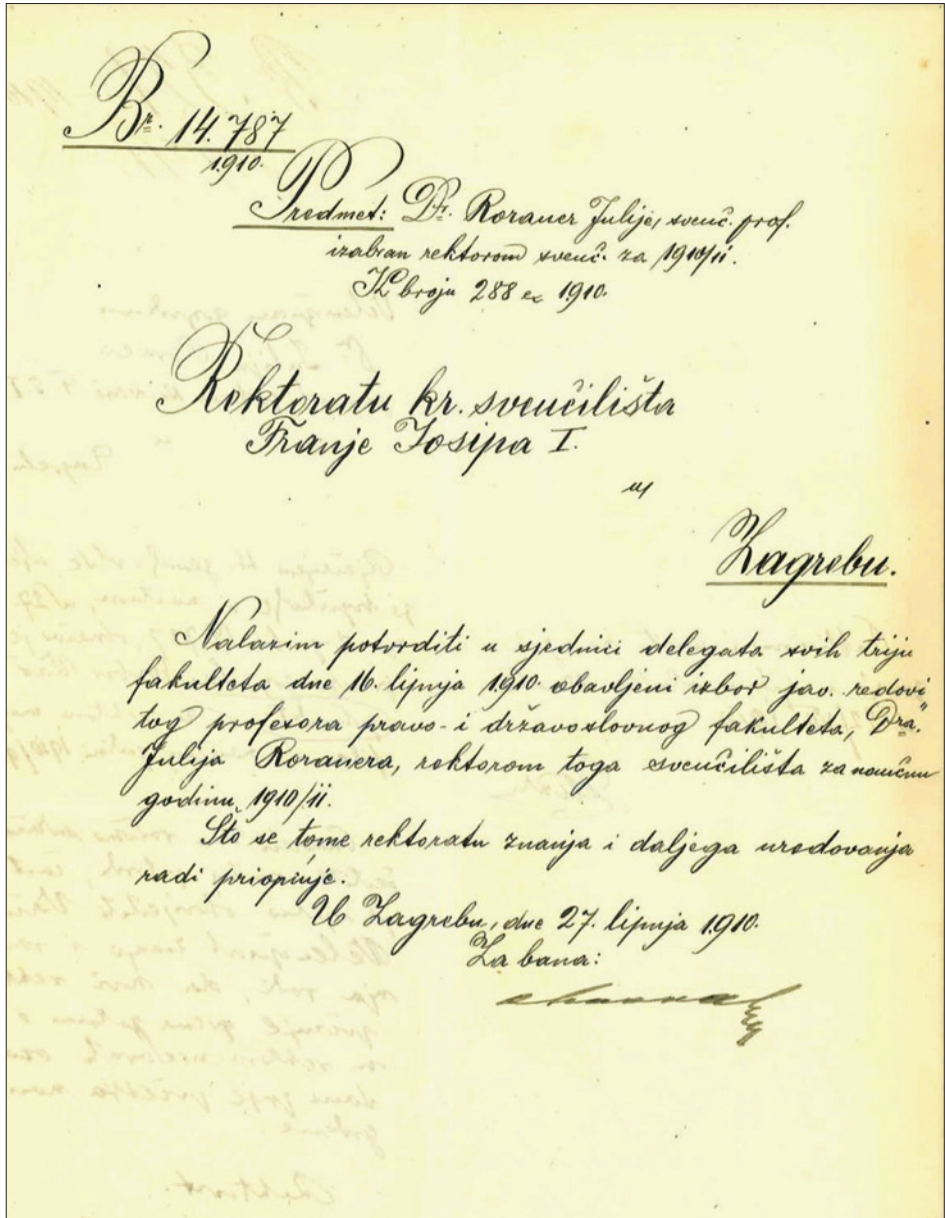 Br. 14.787
1910.
Predmet: Dr. Rorauer Julije, sveuč. prof.
izabran rektorom sveuč. za 1910/11.
K broju 288 ex 1910.
Rektoratu kr. sveučilišta
Franje Josipa I.
u
Zagrebu.
Nalazim potvrditi u sjednici delegata svih triju
fakulteta dne 16. lipnja 1910. obavljeni izbor jav. redovi
tog profesora pravo- i državoslovnog fakulteta, Dra.
Julija Rorauera, rektorom toga sveučilišta za naučnu
godinu 1910/11.
Što se tome rektoratu znanja i daljega uredovanja
radi priopćuje.
U Zagrebu, dne 27. lipnja 1910.
Za bana: